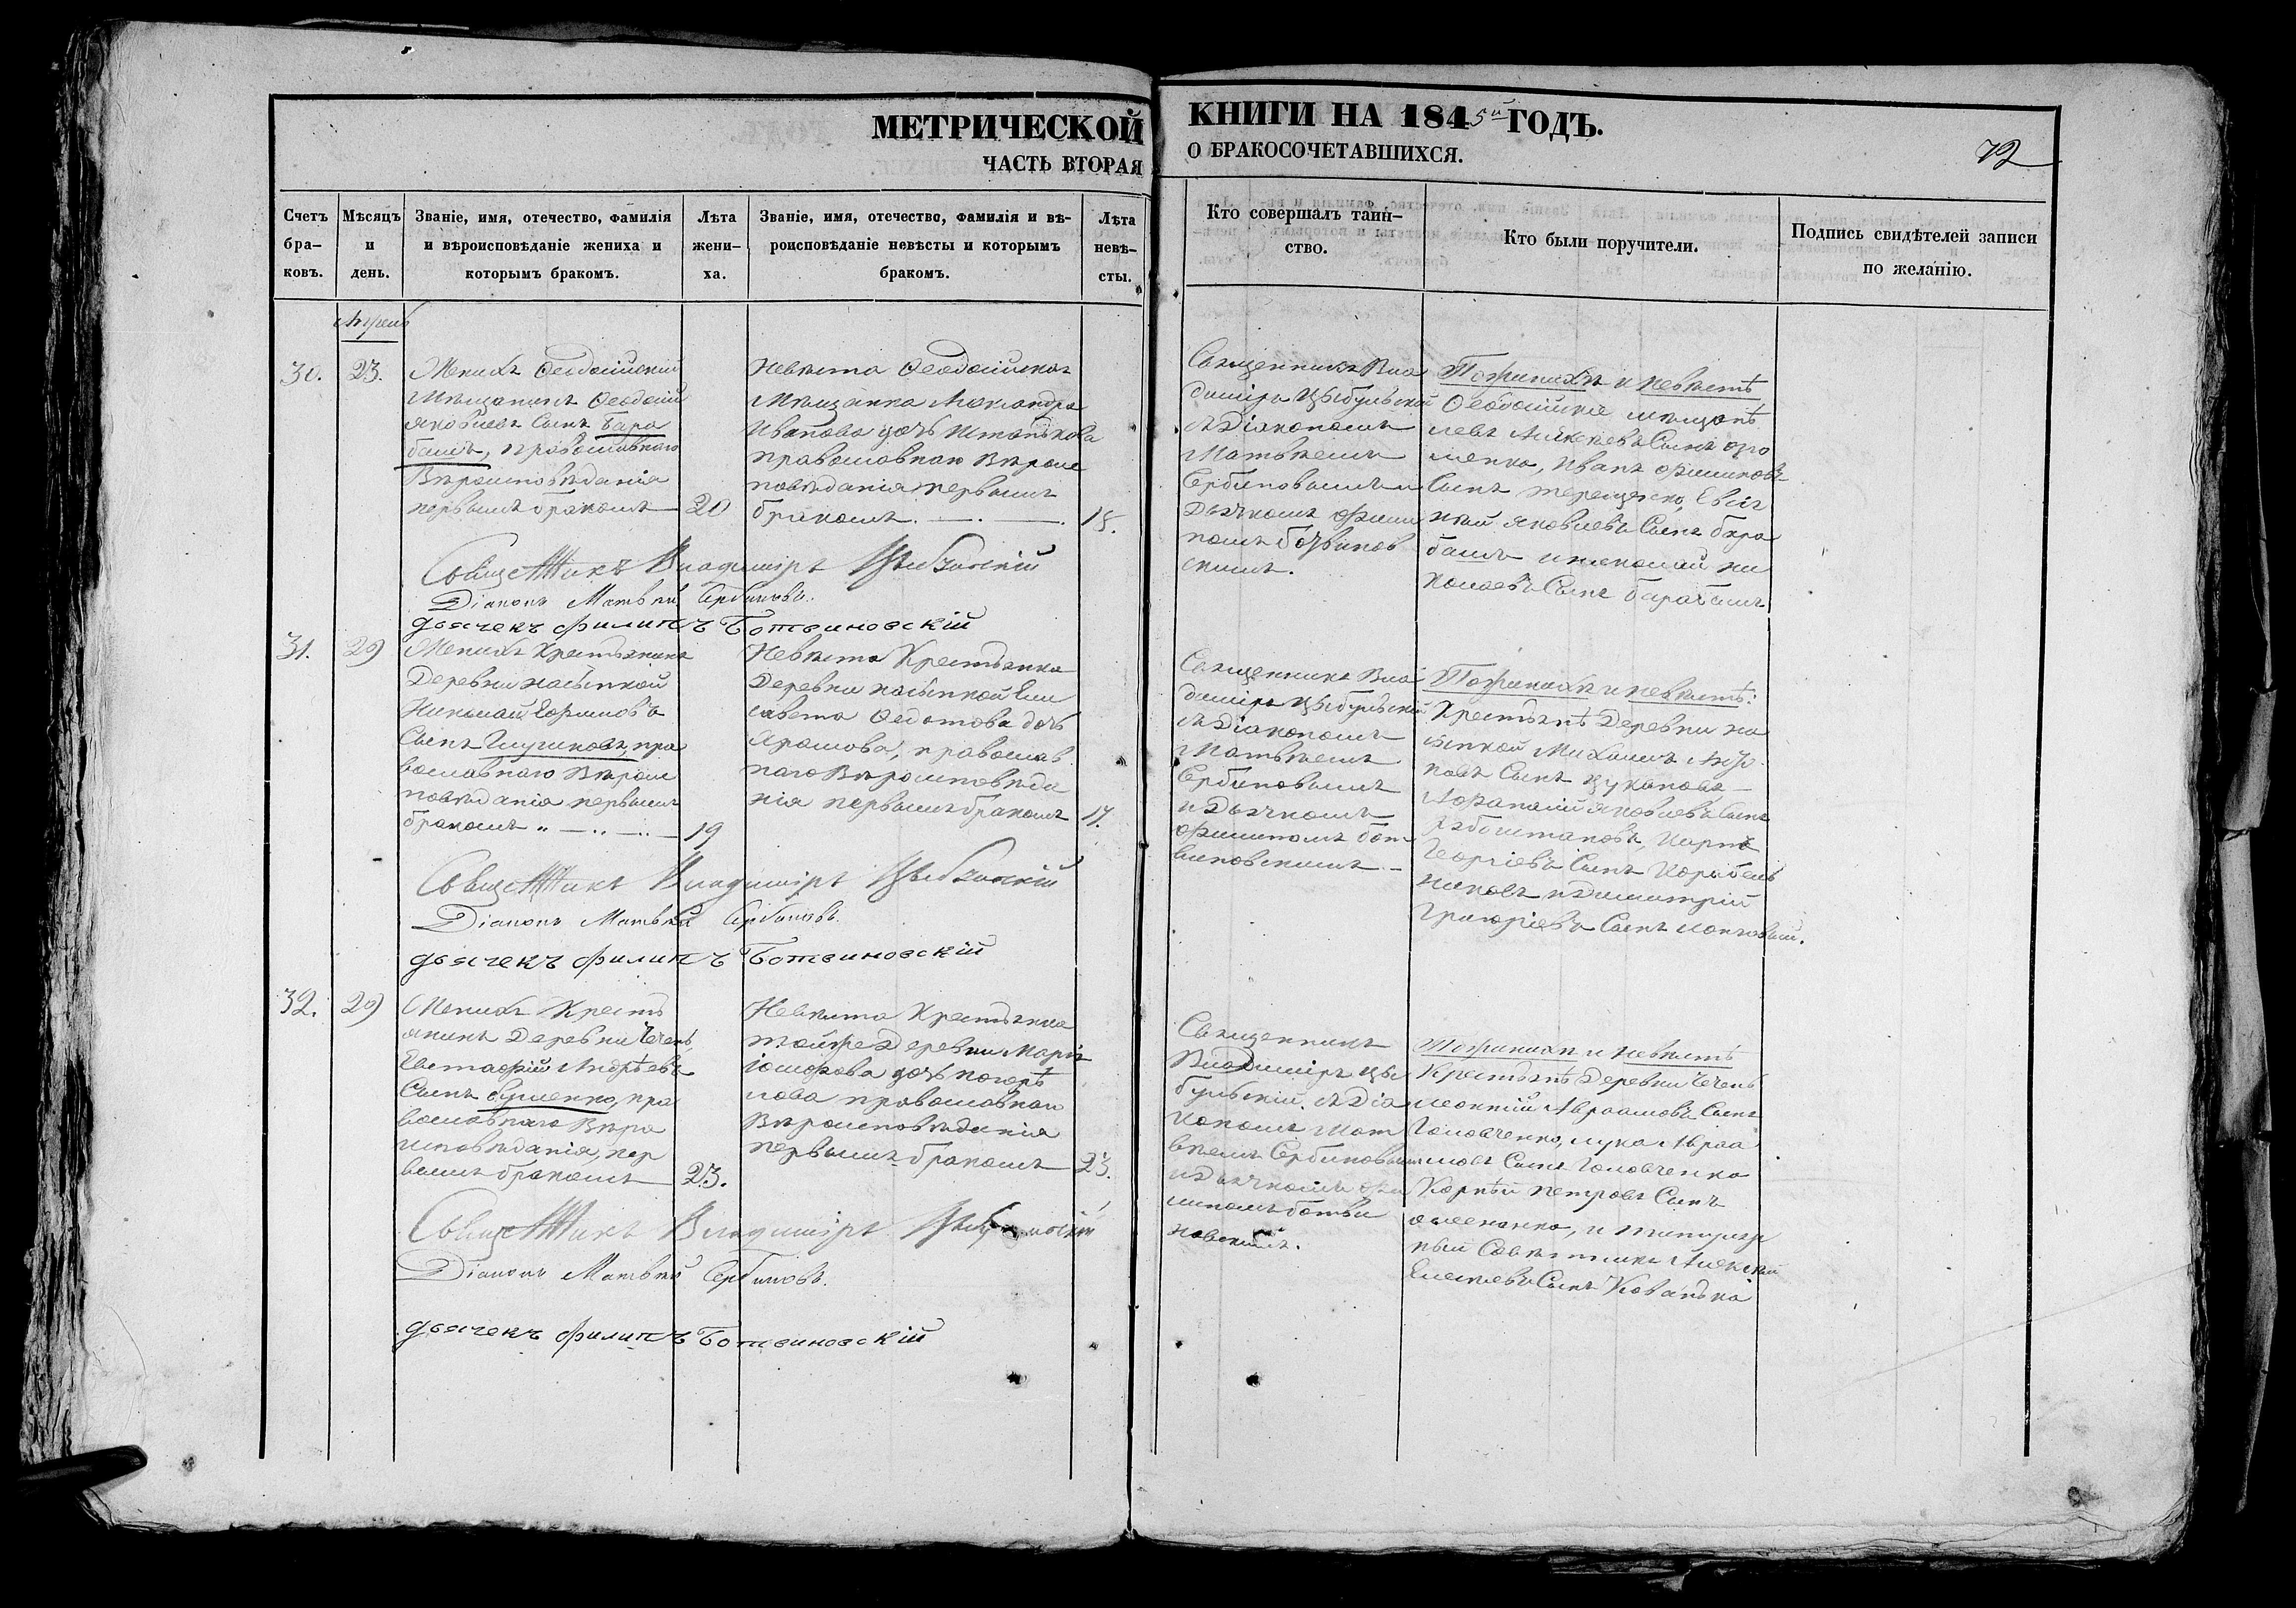 МЕТРИЧЕСКОЙ
ЧАСТЬ ВТОРАЯ
КНИГИ НА 1845й ГОДЪ.
О БРАКОСОЧЕТАВШИХСЯ.
72
Счетъ бра-ковъ.
Мѣсяцъ и день.
Званіе, имя, отечество, фамилія
и вѣроисповѣданіе жениха и
которымъ бракомъ.
Лѣта жени-ха.
Званіе, имя, отечество, фамилія и вѣ-
роисповѣданіе невѣсты и которымъ
бракомъ.
Лѣта невѣ-сты.
Кто совершалъ таин-
ство.
Кто были поручители.
Подпись свидѣтелей записи
по желанію.
Апрель
30.
23.
Женихъ Ѳеодосійскій
Мѣщанинъ Ѳеодосій
Яковлевъ Сынъ Бара
башъ, православнаго
Вѣроисповѣданія
первымъ бракомъ
20
Невѣста Ѳеодосійская
Мѣщанка Александра
Иванова дочь
православнаго Вѣроис
повѣданія первымъ
бракомъ.
18.
Священникъ Вла
диміръ Цыбульскій
съ Діакономъ
Матвѣемъ
Сербиновымъ и
Дьячкомъ Фили
помъ Ботвинов
скимъ.
По женихѣ и невѣстѣ
Ѳеодосійскіе мѣщанѣ
менко, Иванъ Филиповъ
Сынъ Терещенко, Евге
ній Яковлевъ Сынъ Бара
башъ и Николай Ни
колаевъ Сынъ Барабашъ
Священникъ Владиміръ Цыбульскій
Діаконъ Матвѣй Сербиновъ.
дьячекъ Филипъ Ботвиновскій
31.
29
Женихъ Крестьянинъ
Деревни Насыпкой
Николай Ефимовъ
Сынъ Глушковъ, пра
вославнаго Вѣроис
повѣданія первымъ
бракомъ
19
Невѣста Крестьянка
Деревни Насыпкой Ели
савета Ѳедотова дочь
Ярашова, православ
наго Вѣроисповѣда
нія первымъ бракомъ
17.
Священникъ Вла
диміръ Цыбульскій
съ Діакономъ
Матвѣемъ
Сербиновымъ
и Дьячкомъ
Филипомъ Бот
виновскимъ
По женихѣ и невѣстѣ:
Крестьянѣ Деревни На
сыпкой Михаилъ
Сынъ Цукановъ
Афанасій Яковлевъ Сынъ
Георгіевъ Сынъ Корабель
никовъ и Димитрій
Григоріевъ Сынъ
Священникъ Владиміръ Цыбульскій
Діаконъ Матвѣй Сербиновъ.
дьячекъ Филипъ Ботвиновскій
32.
29
Женихъ Кресть
янинъ Деревни Чечень,
Евстафій Андреевъ
Сынъ Бутенко, пра
вославнаго Вѣро
исповѣданія, пер
вымъ бракомъ
23.
Невѣста Крестьянка
той же Деревни Марія
Іосифова дочь Погорѣ
лова православнаго
Вѣроисповѣданія
первымъ бракомъ
23.
Священникъ
Владиміръ Цы
бульскій съ Діа
кономъ Мат
вѣемъ Сербиновымъ
и Дьячкомъ Фи
липомъ Ботви
новскимъ.
По женихѣ и невѣстѣ
Крестьянѣ Деревни Чечень
Леонтій Авраамовъ Сынъ
Головченко, Лука Авраа
мовъ Сынъ Головченко
Корнѣй Петровъ Сынъ
и титуляр
ный Совѣтникъ Алексѣй
Алексѣевъ Сынъ Кованько
Священникъ Владиміръ Цыбульскій
Діаконъ Матвѣй Сербиновъ.
дьячекъ Филипъ Ботвиновскій